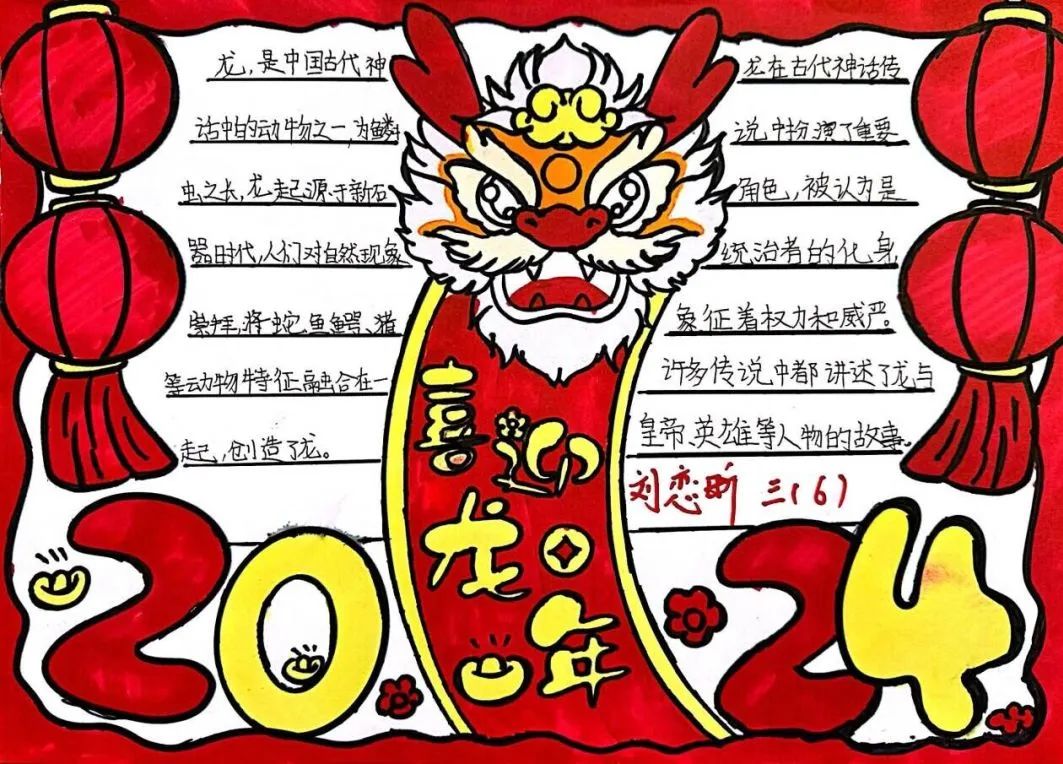 龙,是中国古代神
话中的动物之一,为鳞
虫之长,龙起源于新石
器时代,人们对自然现象
崇拜,将蛇、鱼、鳄、猪
等动物特征融合在一
起,创造了龙。
龙在古代神话传
说中扮演了重要
角色,被认为是
统治者的化身
象征着权力和威严。
许多传说中都讲述了龙与
皇帝、英雄等人物的故事。
刘恋昕 三(6)
喜迎
龙年
2024